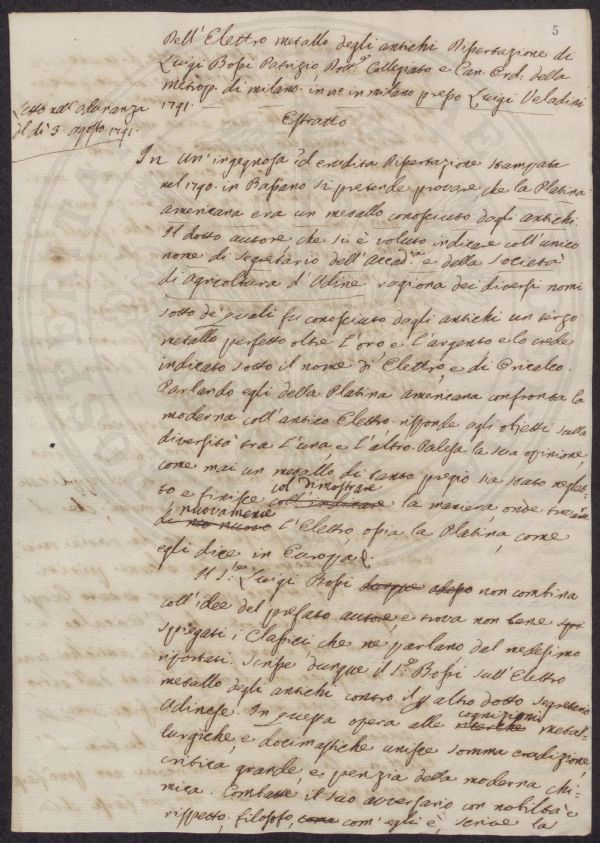 5
Dell'Elettro metallo degli antichi Dissertazione di
Luigi Bossi Patrizio, Dott.e Collegiato e Can. Ord. della
Metrop. di milano. in milano presso Luigi Veladini
1791.
Letto nell'Adunanza
il dì 3. agosto 1791.
Estratto
In un'ingegnosa ed erudita Dissertazione stampata
nel 1790. in Bassano si pretende provare, che la Platina
americana era un metallo conosciuto dagli antichi.
Il dotto autore che si è voluto indicare coll'unico
nome di Segretario dell'Accad.a e della Società
di agricoltura d'Udine ragiona dei diversi nomi
sotto de' quali fu conosciuto dagli antichi un terzo
metallo perfetto oltre L'oro e L'argento e lo crede
indicato sotto il nome di Elettro, e di Oricalco.
Parlando egli della Platina americana confronta la
moderna coll'antico Elettro. risponde agli objetti sulla
diversità tra L'una, e L'altro. Palesa la sua opinione,
come mai un metallo di tanto pregio sia stato neglet-
col dimostrare
to e finisce coll'indicare la maniera onde
nuovamente
di nuovo L'Elettro ossia la Platina, come
egli dice in Europa.
Il S.re Luigi Bossi dunque adesso non combina
coll'idee del prefato autore, e trova non bene
spiegati i Classici che ne parlano dal medesimo
riportati. Scrisse dunque il S.re Bossi sull'Elettro
metallo degli antichi contro il altro dotto Segretario
Udinese. In questa opera alle
cognizioni
ricerche metal-
lurgiche, e docimastiche unisce somma erudizione,
critica grande, e perizia della moderna chi-
mica. Combatte il suo avversario con nobiltà e
rispetto. filosofo, come com'egli è, scrive la